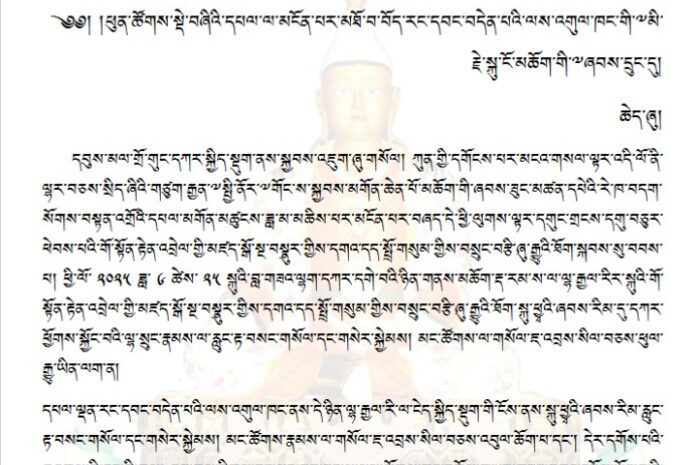 ༄༅། །ཕུན་ཚོགས་སྡེ་བཞིའི་དཔལ་ལ་མངོན་པར་མཐོ་བ་བོད་རང་དབང་བདེན་པའི་ལས་འགུལ་ཁང་གི་༸མི་
རྗེ་སྐུ་ངོ་མཆོག་གི་༸ཞབས་དྲུང་དུ།
ཆེད་ཞུ།
དབུས་མལ་གྲོ་གུང་དཀར་སྐྱིད་སྡུག་ནས་སྐྱབས་འཇུག་ཞུ་གསོལ། ཀུན་གྱི་དགོངས་པར་མངའ་གསལ་ལྟར་འདི་ལོ་ནི་
ལྷར་བཅས་སྲིད་ཞིའི་གཙུག་རྒྱན་༸སྤྱི་ནོར་༸གོང་ས་སྐྱབས་མགོན་ཆེན་པོ་མཆོག་གི་ཞབས་ཟུང་མཚན་དཔེའི་རེ་ཁ་བདག་
སོགས་བསྟན་འགྲོའི་དཔལ་མགོན་མཚུངས་ཟླ་མ་མཆིས་པར་མངོན་པར་བཞད་དེ་ཕྱི་ལུགས་ལྟར་དགུང་གྲངས་དགུ་བཅུར་
ཕེབས་པའི་གོ་སྟོན་རྟེན་འབྲེལ་གྱི་མཛད་སྒོ་སྔ་བསྣུར་གྱིས་དགའ་དད་སྤྲོ་གསུམ་གྱིས་བསྲུང་བརྩི་ཞུ་རྒྱུའི་ཐོག་སྐབས་སུ་བབས་
པ། ཕྱི་ལོ་ ༢༠༢༥ ཟླ་ ༦ ཚེས་ ༢༥ སྐུའི་བླ་གཟའ་ལྷག་དཀར་དགེ་བའི་ཉིན་གནས་མཆོག་རྡ་རམ་ས་ལ་ལྷ་རྒྱལ་རིར་སྐུའི་གོ་
སྟོན་རྟེན་འབྲེལ་གྱི་མཛད་སྒོ་སྔ་བསྣུར་གྱིས་དགའ་དད་སྤྲོ་གསུམ་གྱིས་བསྲུང་བརྩི་ཞུ་རྒྱུའི་ཐོག་སྐུ་ཕྱྭའི་ཞབས་རིམ་དུ་དཀར་
ཕྱོགས་སྐྱོང་བའི་ལྷ་སྲུང་རྣམས་ལ་རླུང་རྟ་བསང་གསོལ་དང་གསེར་སྐྱེམས། མང་ཚོགས་ལ་གསོལ་ཇ་འབྲས་སིལ་བཅས་ཕུལ་
རྒྱུ་ཡིན་ལག་ན།
དཔལ་ལྡན་རང་དབང་བདེན་པའི་ལས་འགུལ་ཁང་ནས་དེ་ཉིན་ལྷ་རྒྱལ་རི་ལ་ངེད་སྐྱིད་སྡུག་གི་ངོས་ནས་སྐུ་ཕྱྭའི་ཞབས་རིམ་རླུང་
རྟ་བསང་གསོལ་དང་གསེར་སྐྱེམས། མང་ཚོགས་རྣམས་ལ་གསོལ་ཇ་འབྲས་སིལ་བཅས་འབུལ་ཆོག་པ་དང་། དེར་དགོས་པའི་